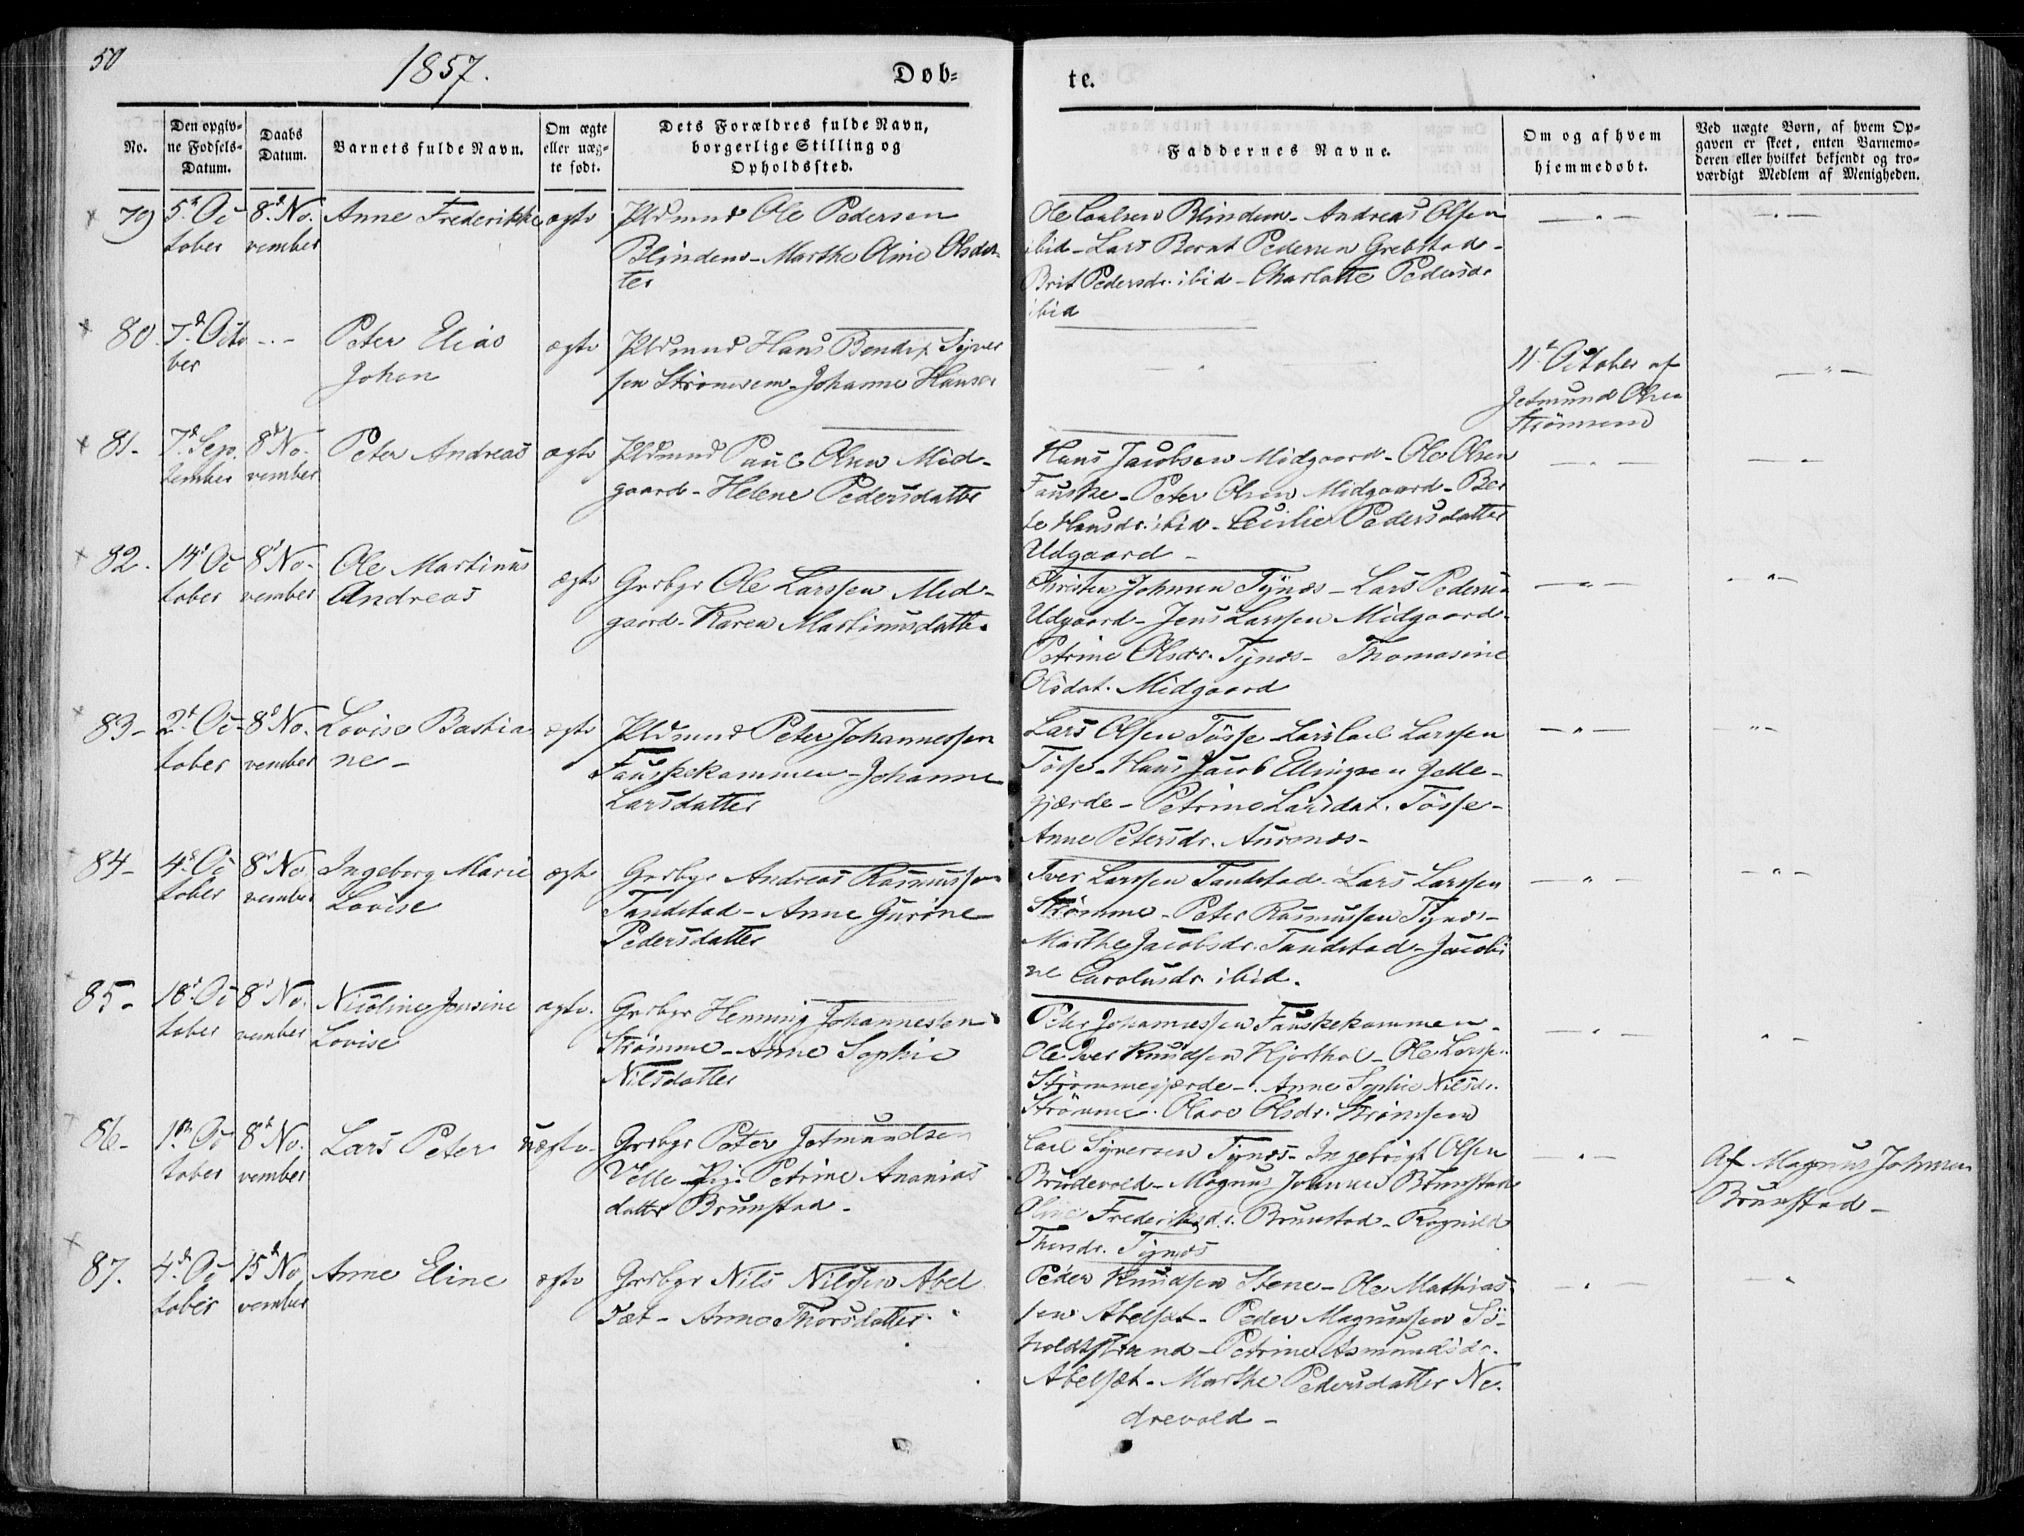 50
1857.
Døb-
te.
No.
Den opgiv-
ne Fødsels-
Datum.
Daabs
Datum.
Barnets fulde Navn.
Om ægte
eller uæg-
te født.
Dets Forældres fulde Navn,
borgerlige Stilling og
Opholdssted.
Faddernes Navne.
Om og af hvem
hjemmedøbt.
Ved uægte Børn, af hvem Op-
gaven er skeet, enten Barnemo-
deren eller hvilket bekjendt og tro-
værdigt Medlem af Menigheden.
79 5te Oc 8de No. Anne Frederikke ægte Pldmnd Ole Pedersen
tober vember Blindem - Marthe Oline Olsdat-
ter
Ole Blindem - Andreas Olsen
ibid - Lars Bernt Pedersen Grebstad -
Brit Pedersdr. ibid - Charlotte Pedersdr
ibid
80. 7de Octo - Peter Elias ægte Pldmnd Hans Bendix Syver
ber Johan sen Strømsem - Johanne Hansdr
11te October af
Jetmund Olsen
Strømsem
81. 7de Sep. 8de No- Peter Andreas ægte Pldmnd Paul Olsen Mid-
tember vember gaard - Helene Pedersdatter
Hans Jacobsen Midgaard - Ole Olsen
Fauske - Peter Olsen Midgaard - Ber
te Hansdr. ibid - Cecilie Pedersdatter
Udgaard -
82. 14de Oc 8de No- Ole Martinus ægte Grdbgr Ole Larssen Mid-
tober vember Andreas gaard - Karen Martinusdatter
Christen Johnsen Tynæs - Lars Pedersen
Udgaard - Jens Larssen Midgaard -
Petrine Olsdr. Tynæs - Thomasine
Olsdat. Midgaard
83- 2de Oc- 8de No- Lovise Bastia ægte Pldmnd Peter Johannessen
tober vember ne - Fauskekammen - Johanne
Larsdatter
Lars Olsen Tösse Lars Carl Larssen
Tösse - Hans Jacob Ellingsen Jelle-
gjærde - Petrine Larsdat. Tösse -
Anne Petersdr. Aursnæs -
84- 4de Oc 8de No Ingeborg Marie ægte Grdbgr Andreas Rasmussen
tober vember Lovise Tandstad - Anne Gurine
Pedersdatter
Iver Larssen Tandstad. Lars Larssen
Strømme - Peter Rasmussen Tynæs -
Marthe Jacobsdr. Tandstad - Jacobi
ne Carolusdr. ibid.
85- 18de Oc 8de No. Nicoline Jensine ægte. Grdbgr Henning Johannessen
tober vember Lovise Strømme - Anne Sophie
Nilsdatter
Peter Johannessen Fauskekammen -
Ole Iver Knudsen Hjorthol - Ole Larss.
Strømmegjærde - Anne Sophie Nilsdr.
Strømme. Olave Olsdr. Strømsem
86- 1ste Oc 8de No. Lars Peter uægte - Grdbgr Peter Jetmundsen
tober vember Velle - Pig. Petrine Ananias
datter Brunstad -
Carl Syversen Tynæs - Ingebrigt Olsen
Brudevold - Magnus Johnsen Brunstad
Oline Frederiksdr. Brunstad - Ragnild
Thorsdr. Tynæs
Af Magnus Johnsen
Brunstad -
87. 4de Oc 15de No Anne Eline ægte Grdbgr Nils Nilssen Abel
tober vember sæt - Anne Thorsdatter.
Peder Knudsen Stene - Ole Mathias-
sen Abelsæt - Peder Magnussen Sö-
holdtstrand - Petrine Asmundsdr.
Abelsæt - Marthe Pedersdatter Ne-
drevold -